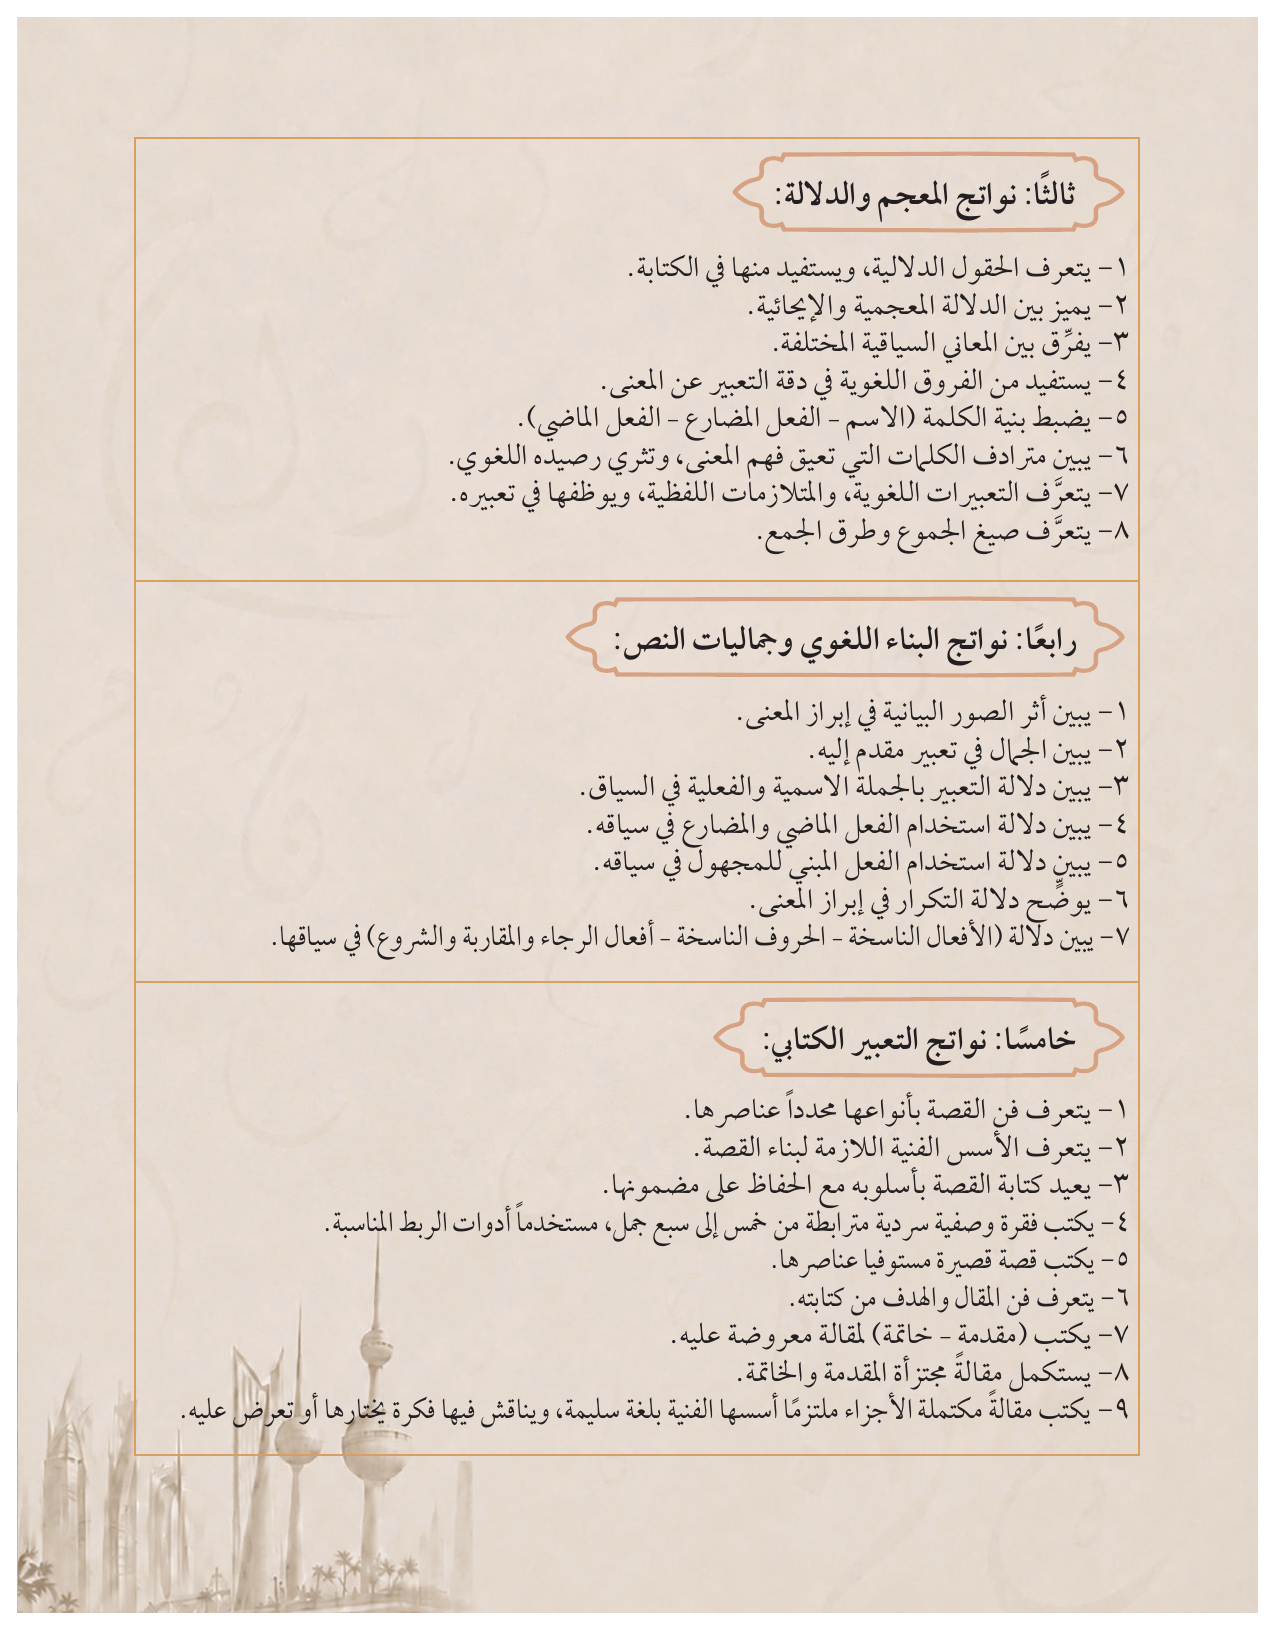 ثالثًا: نواتج المعجم والدلالة:
١- يتعرف الحقول الدلالية، ويستفيد منها في الكتابة.
٢- يميز بين الدلالة المعجمية والإيحائية.
٣- يفرِّق بين المعاني السياقية المختلفة.
٤- يستفيد من الفروق اللغوية في دقة التعبير عن المعنى.
٥- يضبط بنية الكلمة (الاسم - الفعل المضارع - الفعل الماضي).
٦- يبين مترادف الكلمات التي تعيق فهم المعنى، وتثري رصيده اللغوي.
٧- يتعرَّف التعبيرات اللغوية، والمتلازمات اللفظية، ويوظفها في تعبيره.
٨- يتعرَّف صيغ الجموع وطرق الجمع.
رابعًا: نواتج البناء اللغوي وجماليات النص:
١- يبين أثر الصور البيانية في إبراز المعنى.
٢- يبين الجمال في تعبير مقدم إليه.
٣- يبين دلالة التعبير بالجملة الاسمية والفعلية في السياق.
٤- يبين دلالة استخدام الفعل الماضي والمضارع في سياقه.
٥- يبين دلالة استخدام الفعل المبني للمجهول في سياقه.
٦- يوضٍّح دلالة التكرار في إبراز المعنى.
٧- يبين دلالة (الأفعال الناسخة - الحروف الناسخة - أفعال الرجاء والمقاربة والشروع) في سياقها.
خامسًا: نواتج التعبير الكتابي:
١- يتعرف فن القصة بأنواعها محدداً عناصرها.
٢- يتعرف الأسس الفنية اللازمة لبناء القصة.
٣- يعيد كتابة القصة بأسلوبه مع الحفاظ على مضمونها.
٤- يكتب فقرة وصفية سردية مترابطة من خمس إلى سبع جمل، مستخدماً أدوات الربط المناسبة.
٥- يكتب قصة قصيرة مستوفيا عناصرها.
٦- يتعرف فن المقال والهدف من كتابته.
٧- يكتب (مقدمة - خاتمة) لمقالة معروضة عليه.
٨- يستكمل مقالةً مجتزأة المقدمة والخاتمة.
٩- يكتب مقالةً مكتملة الأجزاء ملتزمًا أسسها الفنية بلغة سليمة، ويناقش فيها فكرة يختارها أو تعرض عليه.